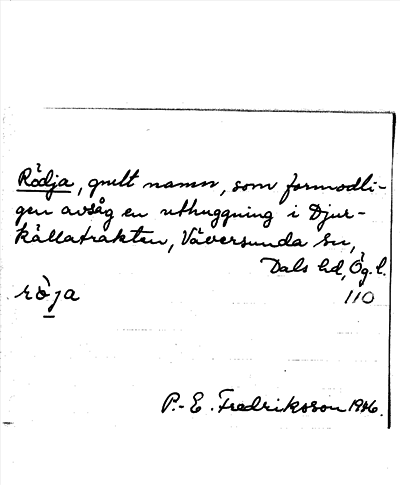 Rödja, gnllt namn, som förmodli-
gen avsåg en uthuggning i Djur-
källatrakten, Väversunda sn,
Dals hd, Ög. l.
röja 110
P.-E. Fredriksson 1946.